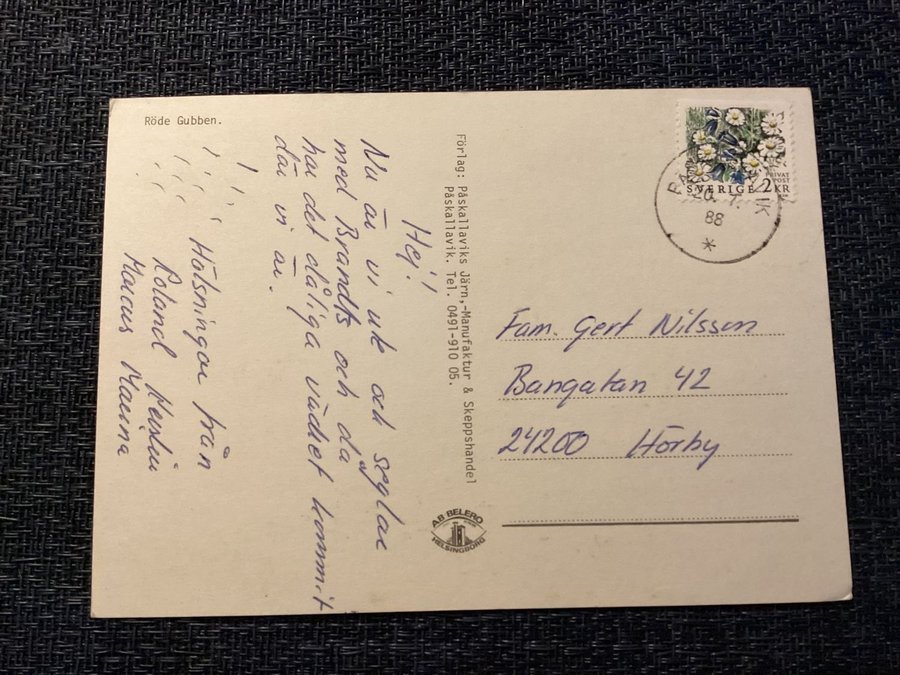 Röde Gubben.
Hej!
Nu är vi ute och seglar
med Brandts och då
har det dåliga vädret kommit
där vi är.
Hälsningar från
Roland
Marcus
Förlag: Påskallaviks Järn,-Manufaktur & Skeppshandel
Påskallavik. Tel. 0491-910 05.
A.B BELERO
HELSINGBORG
SVERIGE 2 KR
PRIVAT
POST
20. 7.
88
Fam. Gert Nilsson
Bangatan 42
24200 Hörby